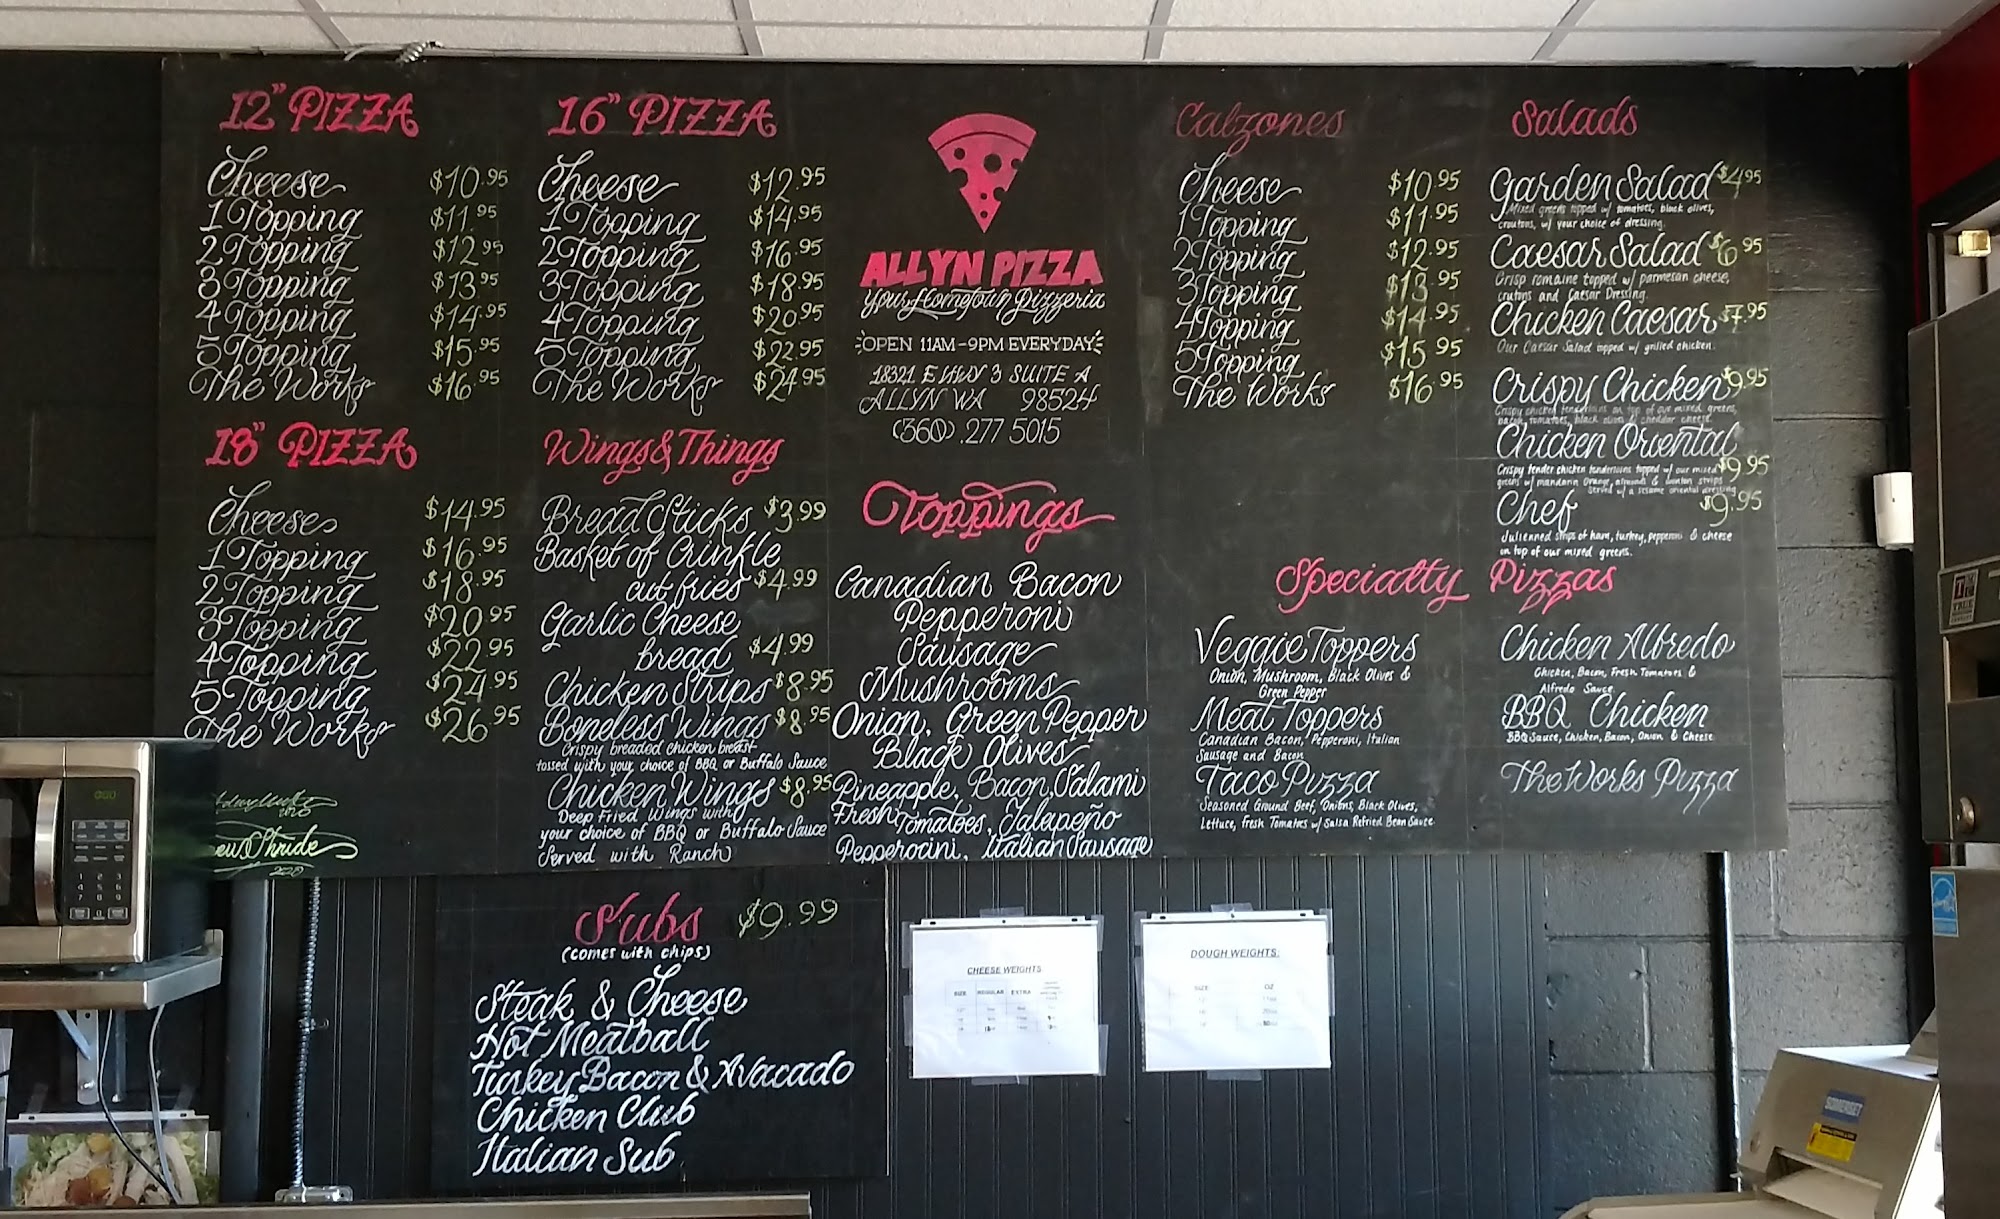 12" PIZZA
Cheese $10.95
1 Topping $11.95
2 Topping $12.95
3 Topping $13.95
4 Topping $14.95
5 Topping $15.95
The Works $16.95
18" PIZZA
Cheese $14.95
1 Topping $16.95
2 Topping $18.95
3 Topping $20.95
4 Topping $22.95
5 Topping $24.95
The Works $26.95
2020
16" PIZZA
Cheese $12.95
1 Topping $14.95
2 Topping $16.95
3 Topping $18.95
4 Topping $20.95
5 Topping $22.95
The Works $24.95
Wings & Things
Bread Sticks $3.99
Basket of Crinkle
cut fries $4.99
Garlic Cheese
bread $4.99
Chicken Strips $8.95
Boneless Wings $8.95
Crispy breaded chicken breast
tossed with your choice of BBQ or Buffalo Sauce
Chicken Wings $8.95
Deep Fried Wings with
your choice of BBQ or Buffalo Sauce
Served with Ranch
ALLYN PIZZA
Your Hometown Pizzeria
OPEN 11AM-9PM EVERYDAY
18321 E HWY 3 SUITE A
ALLYN WA 98524
(360).277 5015
Toppings
Canadian Bacon
Pepperoni
Sausage
Mushrooms
Onion, Green Pepper
Black Olives
Pineapple, Bacon, Salami
Fresh Tomatoes, Jalapeño
Pepperocini, Italian Sausage
Calzones
Cheese $10.95
1 Topping $11.95
2 Topping $12.95
3 Topping $13.95
4 Topping $14.95
5 Topping $15.95
The Works $16.95
Salads
Garden Salad $4.95
Mixed greens topped w/ tomatoes, black olives,
croutons, w/ your choice of dressing.
Caesar Salad $6.95
Crisp romaine topped w/ parmesan cheese,
crutons and Caesar Dressing.
Chicken Caesar $7.95
Our Caesar Salad topped w/ grilled chicken.
Crispy Chicken $9.95
Crispy chicken tenderloins on top of our mixed greens,
bacon, tomatoes, black olives & cheddar cheese.
Chicken Oriental
Crispy tender chicken tenderloins topped w/ our mixed $9.95
greens w/ mandarin orange, almonds & wonton strips
Served w/ a sesame oriental dressing
Chef $9.95
Julienned strips of ham, turkey, pepperoni & cheese
on top of our mixed greens.
Specialty Pizzas
Veggie Toppers
Onion, Mushroom, Black Olives &
Green Pepper
Meat Toppers
Canadian Bacon, Pepperoni, Italian
Sausage and Bacon
Taco Pizza
Seasoned Ground Beef, Onions, Black Olives,
Lettuce, Fresh Tomatoes w/ Salsa Refried Bean Sauce
Chicken Alfredo
Chicken, Bacon, Fresh Tomatoes &
Alfredo Sauce
BBQ Chicken
BBQ Sauce, Chicken, Bacon, Onion & Cheese
The Works Pizza
Subs $9.99
(comes with chips)
Steak & Cheese
Hot Meatball
Turkey Bacon & Avacado
Chicken Club
Italian Sub
CHEESE WEIGHTS
SIZE REGULAR EXTRA
DOUGH WEIGHTS:
SIZE OZ
SOMERSET
TRUE